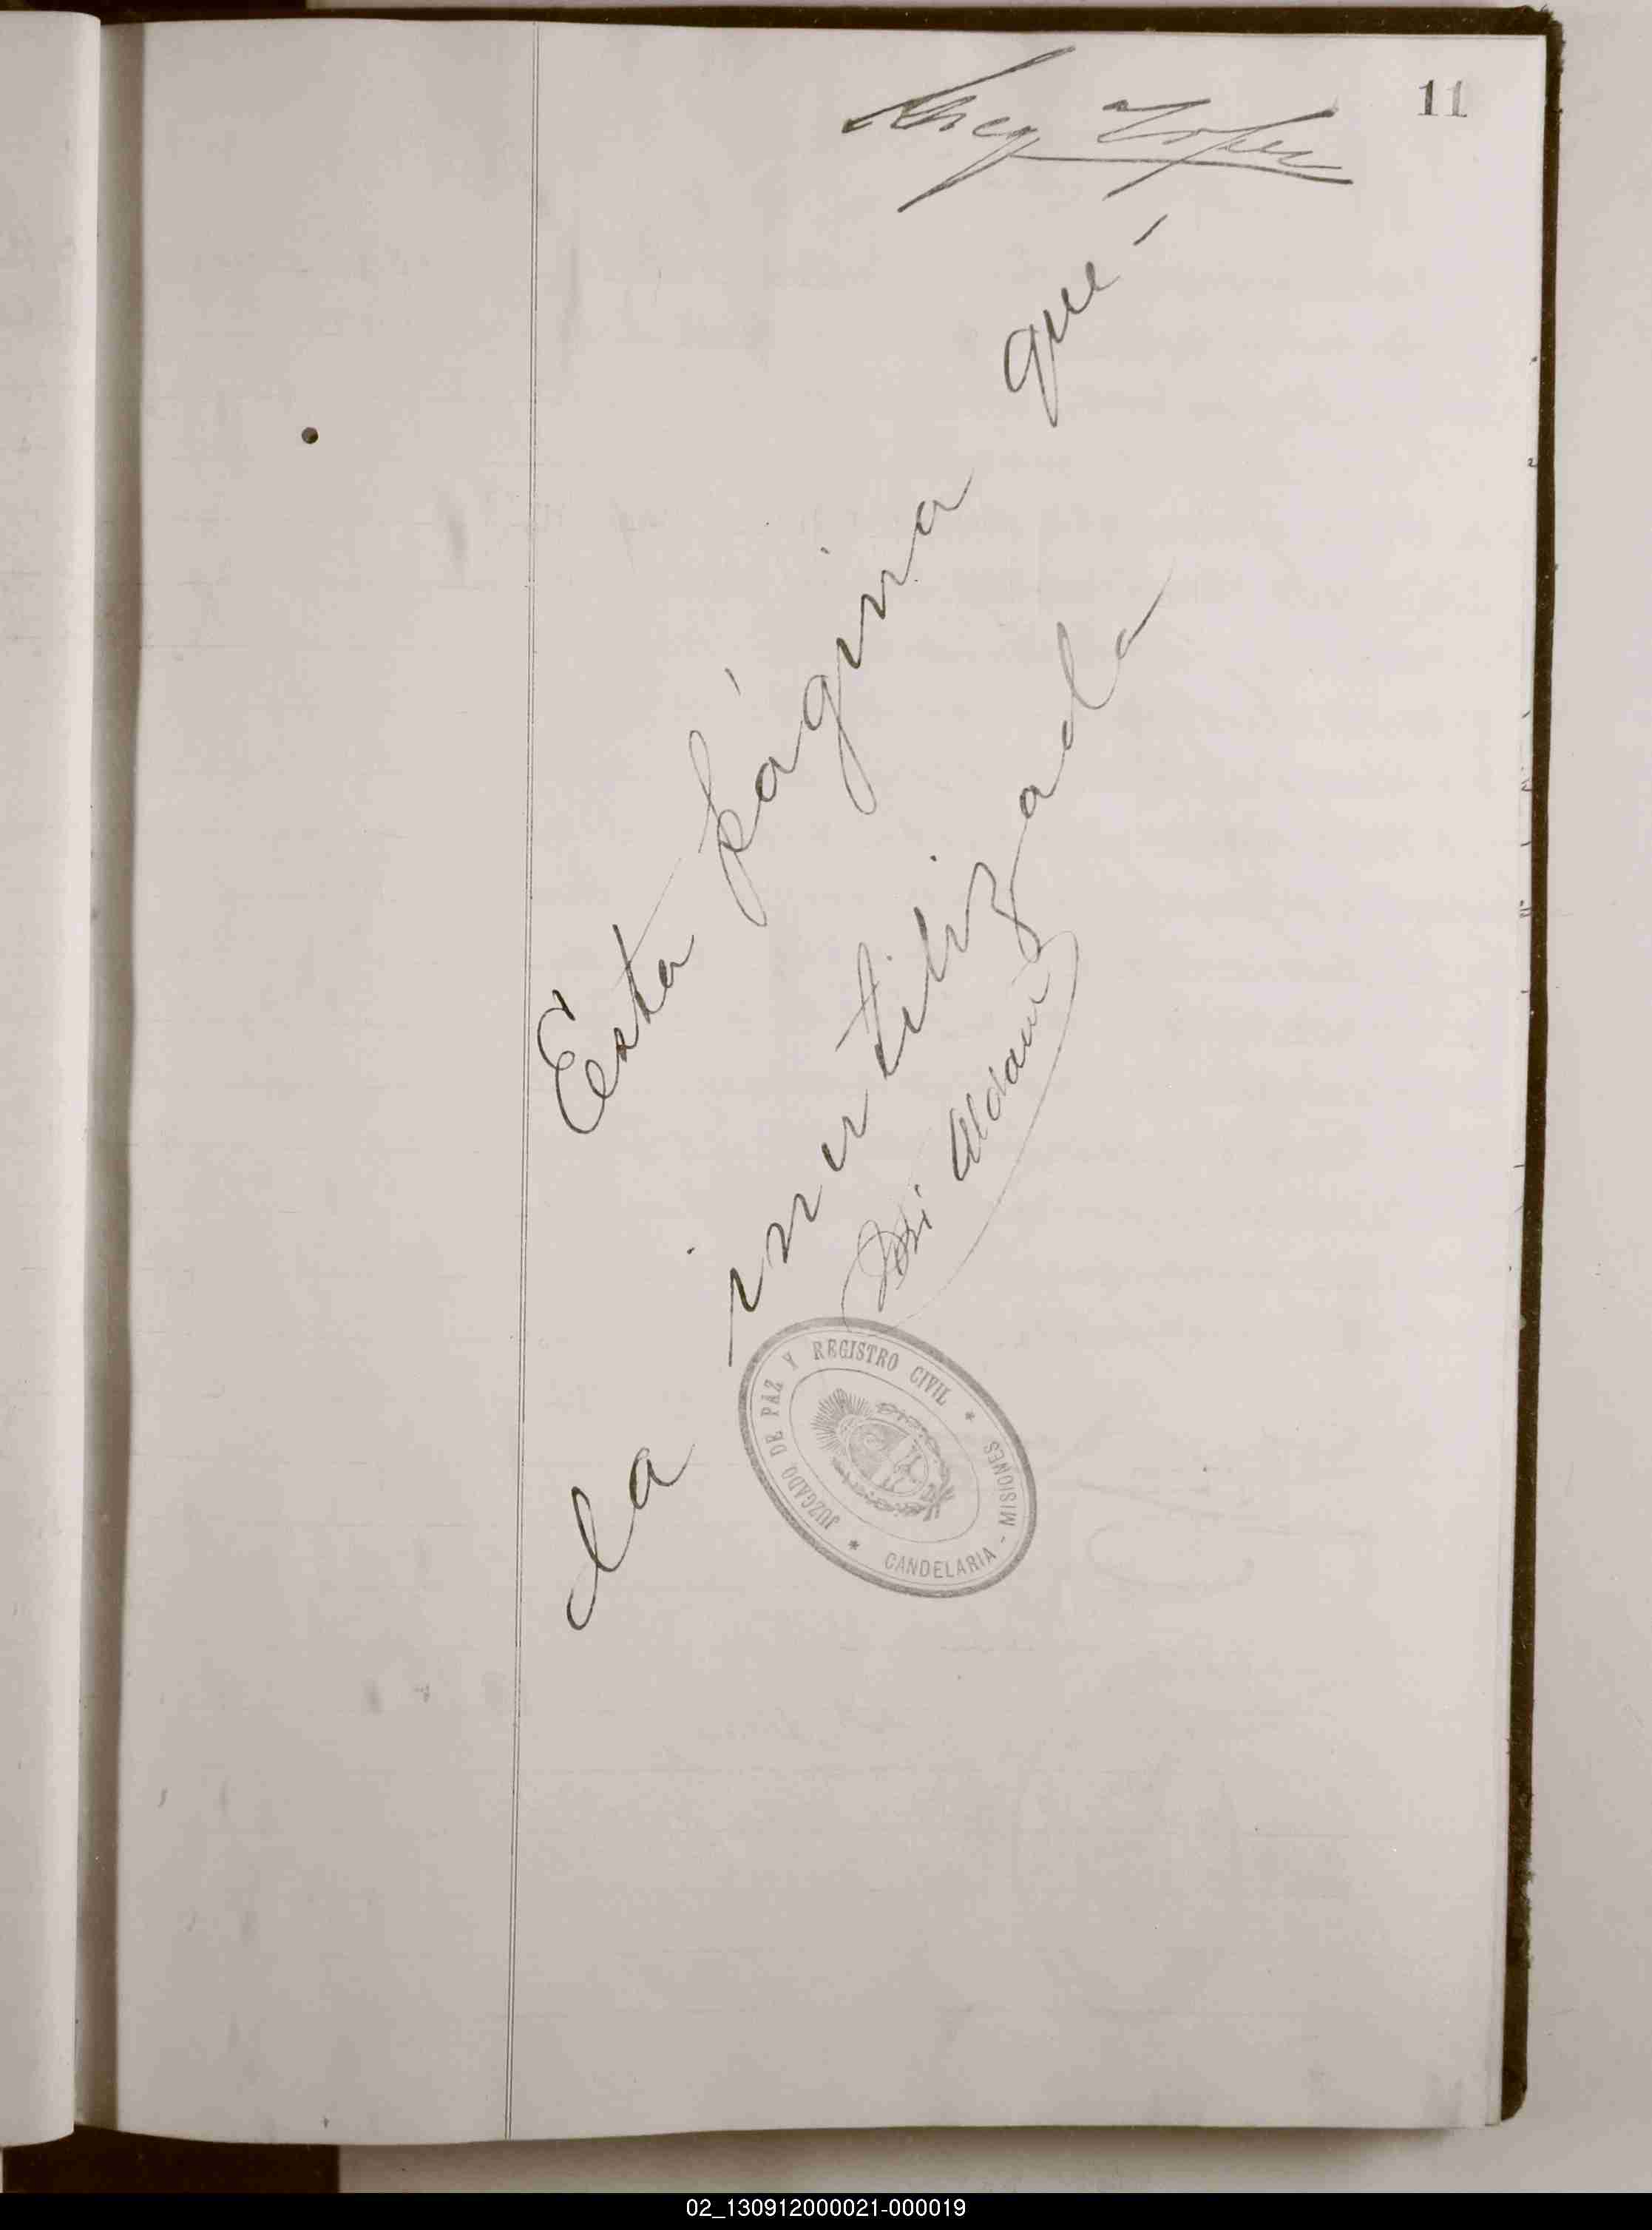 11
Lopez
Esta página que
da inutilizada
José Aldani
JUZGADO DE PAZ Y REGISTRO CIVIL
* CANDELARIA - MISIONES *
02_130912000021-000019